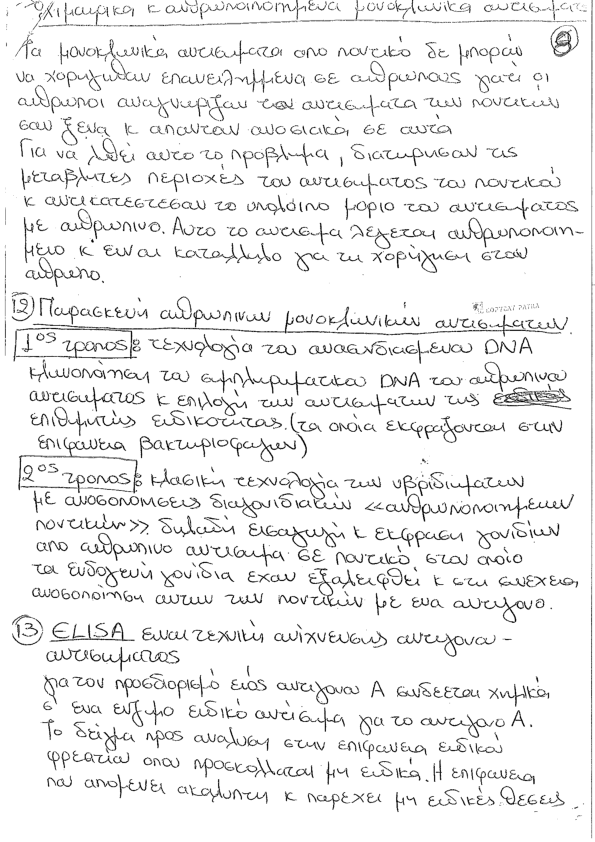 Χιμαιρικα κ ανθρωποποιημένα μονοκλωνικά αντισώματα
8
Τα μονοκλωνικά αντισωματα απο ποντικό δε μπορούν
να χορηγηθουν επανειλημμενα σε ανθρώπους γιατι οι
ανθρωποι αναγνωριζουν τα αντισωματα των ποντικών
σαν ξενα κ απανταν ανοσιακά σε αυτά
Για να λθεί αυτο το προβλημα, διατηρησαν τις
μεταβλητες περιοχές του αντισωματος του ποντικού
κ αντικατεστεσαν το υπολοιπο μοριο του αντισωματος
με ανθρωπινο. Αυτο το αντισωμα λεγεται ανθρωποποιη-
μενο κ' ειναι καταλληλο για τη χορηγηση στον
ανθρωπο.
12 Παρασκευή ανθρωπινων μονοκλωνικών αντισωματων
COPYCAT PATRA
1ος τροπος: τεχνολογία του ανασυνδιασμενου DNA
κλωνοποιηση του συμπληρωματικου DNA του ανθρωπινου
αντισωματος κ επιλογή των αντισωματων της
επιθυμητής ειδικοτητας. (τα οποία εκφραζονται στην
επιφάνεια βακτηριοφαγων)
2ος τροπος: κλασική τεχνολογία των υβριδωματων
με ανοσοποιησεις διαγονιδιακών «ανθρωποποιημενων
ποντικών» δηλαδή εισαγωγή κ εκφραση γονιδίων
απο ανθρωπινο αντισωμα σε ποντικό στον οποίο
τα ενδογενή γονίδια εχουν εξαλειφθεί κ στη συνεχεια
ανοσοποίηση αυτων των ποντικών με ενα αντιγονο.
13 ELISA ειναι τεχνική ανίχνευσης αντιγονου -
αντισωματος
για τον προσδιορισμό ενός αντιγονου Α συνδεεται χημικά
σ' ενα ενζυμο ειδικό αντισωμα για το αντιγονο Α.
Το δείγμα προς αναλυση στην επιφανεια ειδικού
φρεατίου οπου προσκολλαται μη ειδικά. Η επιφανεια
που απομενει ακαλυπτη κ παρεχει μη ειδικές θεσεις